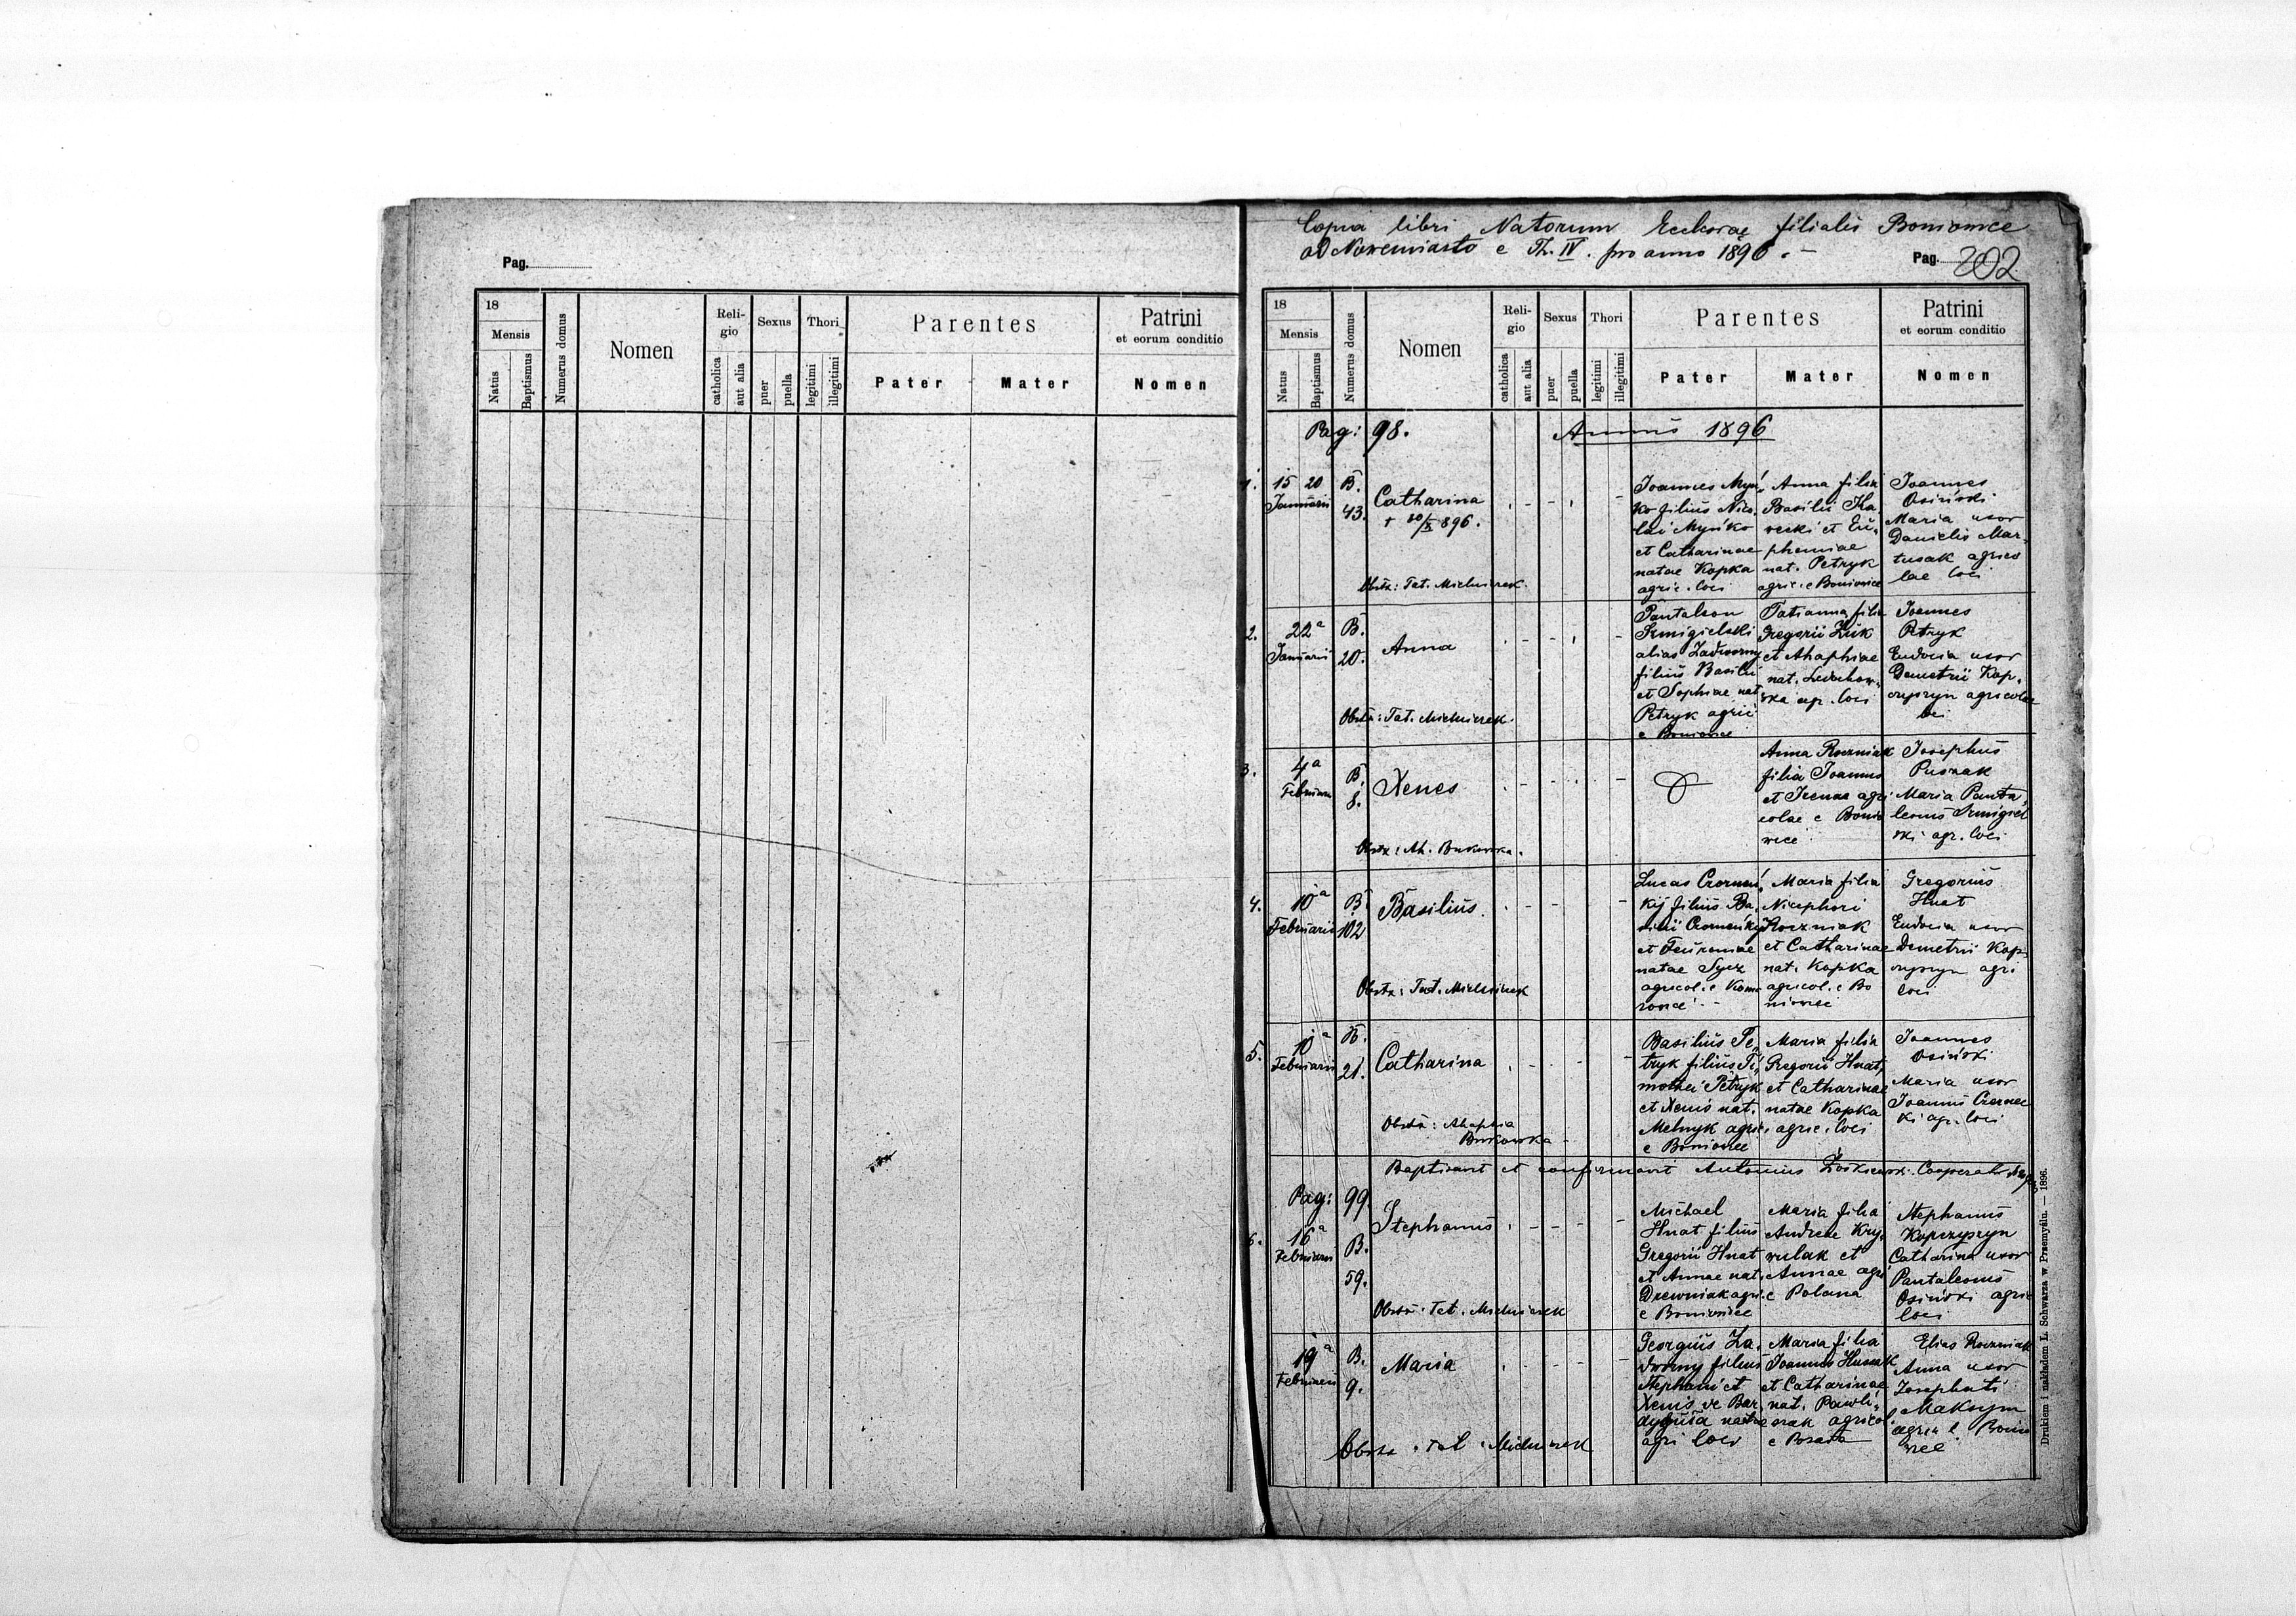 Pag.
18
Mensis
Natus
Baptismus
Numerus domus
Nomen
Reli-
gio
catholica
aut alia
Sexus
puer
puella
Thori
legitimi
illegitimi
Parentes
Pater
Mater
Patrini
et eorum conditio
Nomen
Copia libri Natorum Eccl. filialis Boniowice
ad Nowemiasto e Th. IV. pro anno 1896.
Pag. 202
18
Mensis
Natus
Baptismus
Numerus domus
Nomen
Reli-
gio
catholica
aut alia
Sexus
puer
puella
Thori
legitimi
illegitimi
Parentes
Pater
Mater
Patrini
et eorum conditio
Nomen
Pag: 98. Annus 1896
1.
15 20
Januarii
B.
43.
Catharina
+ 896.
Obstx: Tat. Michnierek.
Joannes Myń
ko filius Nico
lai Myńko
et Catharinae
natae Kopka
agric. loci
Anna filia
Basilii
et Eu
phemiae
nat. Petryk
agric. e Boniowice
Joannes
Osiński
Maria uxor
Danielis Mar
tusak agrico
lae loci
2.
22a
Januarii
B.
20.
Anna
Obstx: Tat. Michnierek.
Pantaleon
Szmigielski
alias Zadworny
filius Basilii
et Sophiae nat.
Petryk agric
e Boniowice
Tatianna filia
Gregorii Żuk
et Ahaphiae
nat.
ska agr. loci
Joannes
Petryk
Eudocia uxor
Demetrii Kop
czyszyn agricolae
loci
3.
4a
Februarii
B.
8.
Xenes
Obstx: Ah. Bukowska.
Anna Roczniak
filia Joannis
et Irenae agri
colae e Bonio
wice
Josephus
Puszak
Maria Panta
leonis Szmigiel
ski agr. loci
4.
10a
Februarii
B.
102
Basilius
Obstx: Tat. Michnierek
Lucas
kij filius Ba
silii
et
natae Sycz
agricol. e Komo
rowice
Maria filia
Nicephori
Roczniak
et Catharinae
nat. Kopka
agricol. e Bo
niowice
Gregorius
Hnat
Eudocia uxor
Demetrii Kop
czyszyn agri
loci
5.
10a
Februarii
B.
21.
Catharina
Obstx: Ahaphia
Bukowska
Basilius Pe
tryk filius Ti
mothei Petryk
et Xenis nat.
Melnyk agric
e Boniowice
Maria filia
Gregorii Hnat
et Catharinae
natae Kopka
agric. loci
Joannes
Osiński
Maria uxor
Joannis Czernec
ki agr. loci
Baptisavit et confirmavit Antonius Cooperator
Pag: 99.
6.
16a
Februarii
B.
59.
Stephanus
Obstx: Tat. Michnierek
Michael
Hnat filius
Gregorii Hnat
et Annae nat.
Drewniak agri
e Boniowice
Maria filia
Andreae Kry
wulak et
Annae agri
e Polana
Stephanus
Kopczyszyn
Catharina uxor
Pantaleonis
Osiński agric
loci
19a
Februarii
B.
9.
Maria
Obstx. Tat. Michnierek
Georgius Za
dworny filius
Stephani et
Xenis de Bar
natae
agri loci
Maria filia
Joannis Hussak
et Catharinae
nat. Pawli
szak agricol
e Posada
Elias Roczniak
Anna uxor
Josephati
Maksym
agric e Bonio
wice
Drukiem i nakładem L. Schwarza w Przemyślu. — 1896.